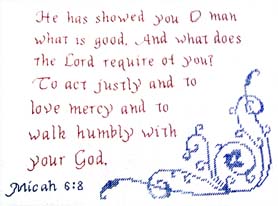 He has showed you O man
what is good. And what does
the Lord require of you?
To act justly and to
love mercy and to
walk humbly with
your God.
Micah 6:8